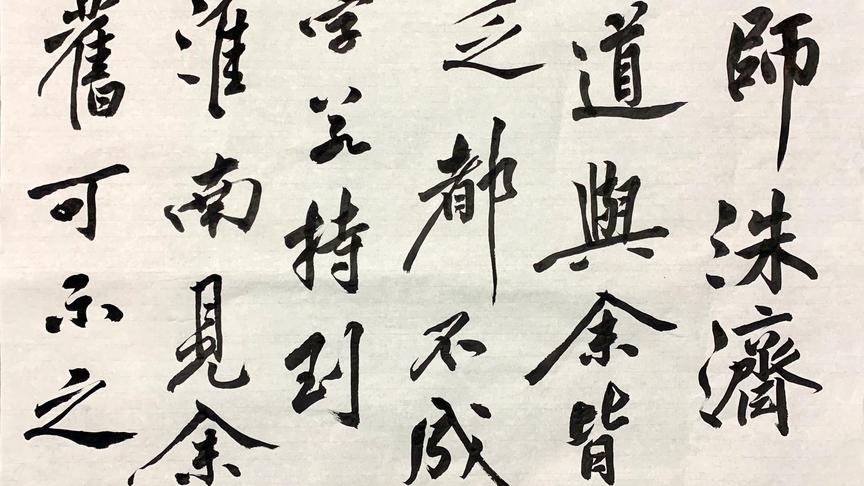 師洙濟
道與余皆
乏都不成
字若持到
淮南見余
舊可示之